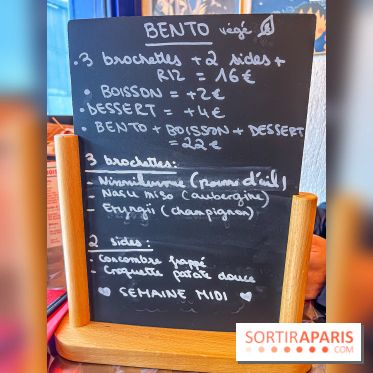 BENTO végé
• 3 brochettes + 2 sides +
RIZ = 16€
• BOISSON = +2€
• DESSERT = +4€
• BENTO + BOISSON + DESSERT
= 22€
3 brochettes:
- (pousse d'ail)
- Nasu miso (aubergine)
- Eringii (champignon)
2 sides:
- Concombre frappé
- Croquette patate douce
♥ SEMAINE MIDI ♥
SORTIRAPARIS
.COM